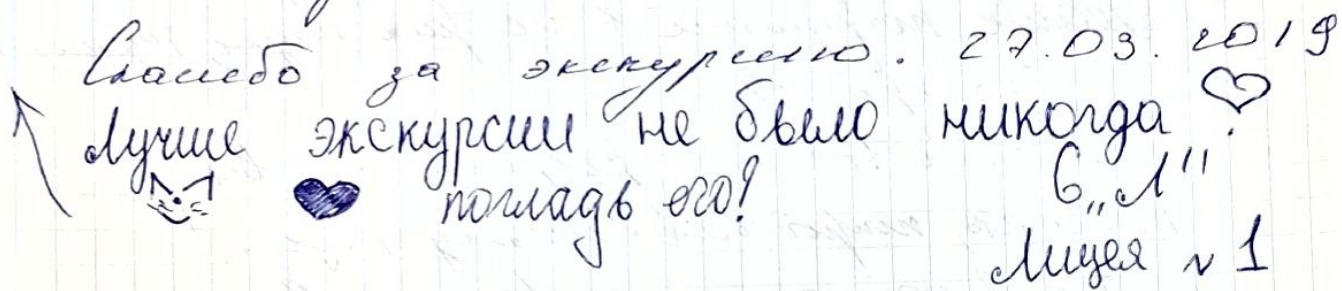 Спасибо за экскурсию. 27.03.2019
Лучше экскурсии не было никогда
погладь его! 6 „Л"
Лицея № 1